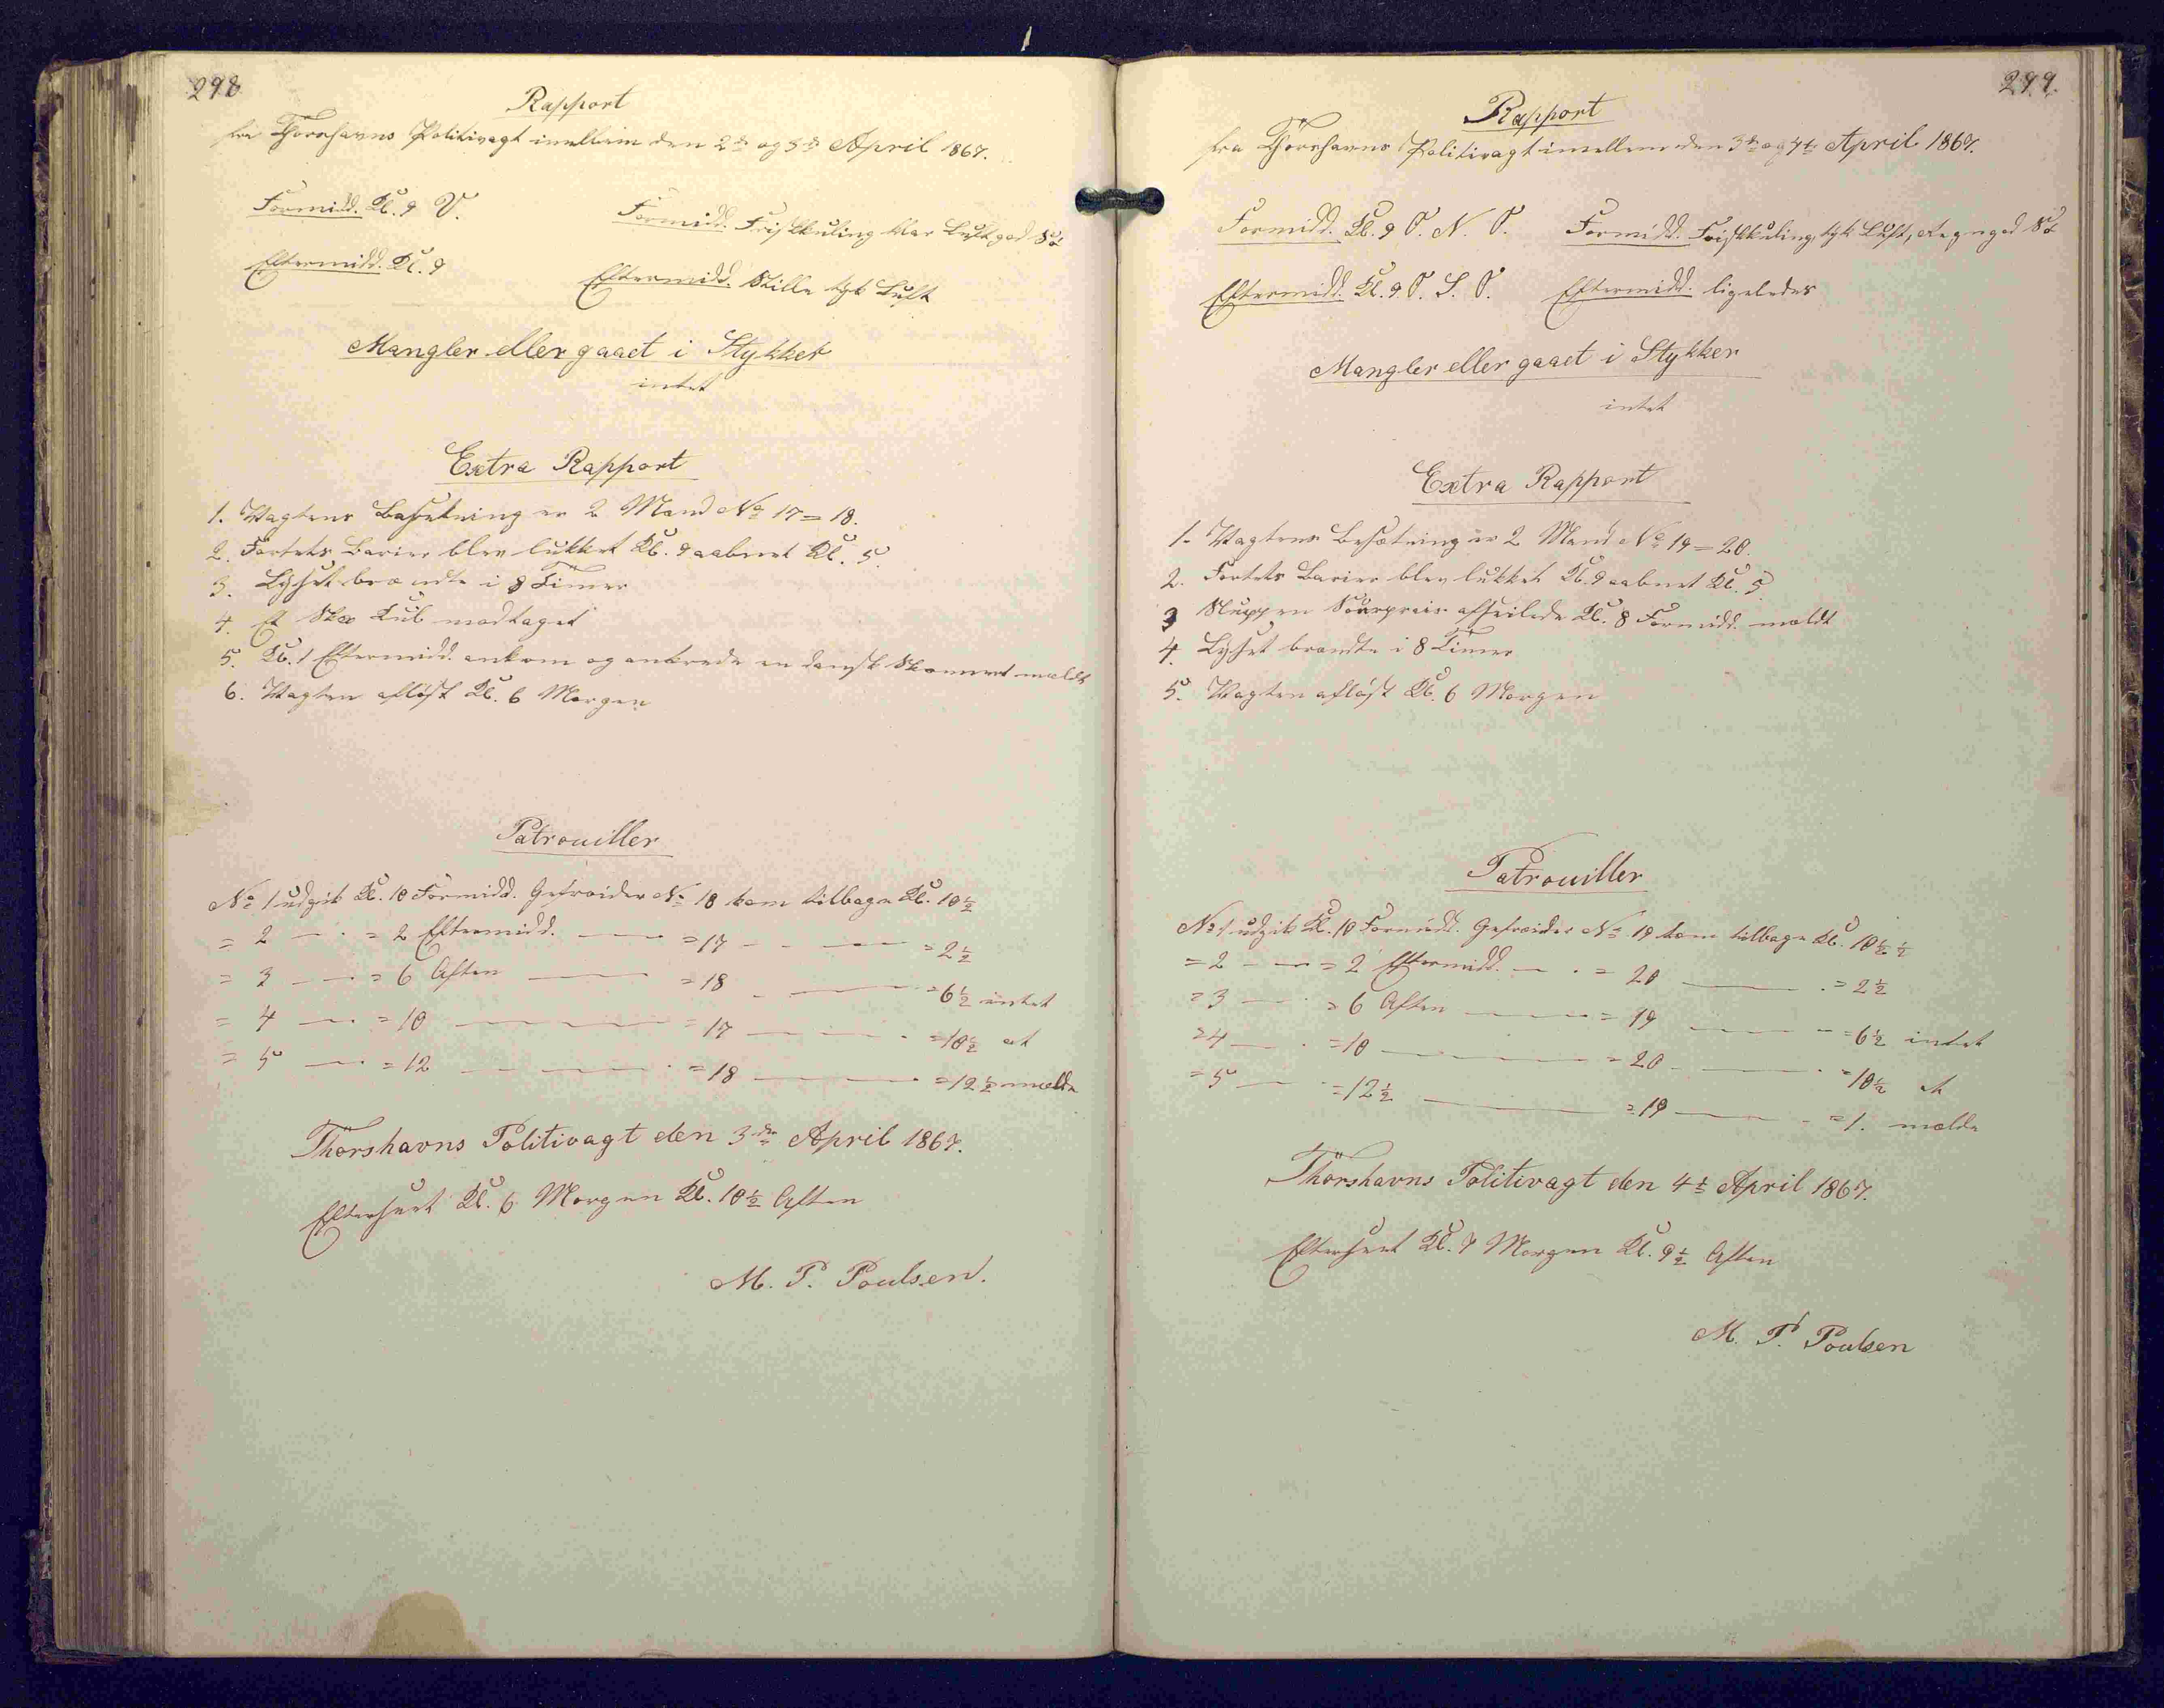 298
Rapport
fra Thorshavns Politivagt imellem den 2de og 3de April 1867.
Formidd. Kl. 9 V.
Formidd. Frisk Kuling klar Luft god Sø
Eftermidd. Kl. 9
Eftermidd. Stille tyk Luft
Mangler eller gaaet i Stykker
intet
Extra Rapport
1. Vagtens Besætning er 2 Mand No 17 = 18.
2. Fortets Barier blev lukket Kl. 9 aabnet Kl. 5.
3. Lyset brændte i 8 Timer
4. Et Skp Kul modtaget
5. Kl. 1 Eftermidd. ankom og ankrede en dansk Skonnert meldt
6. Vagten afløst Kl. 6 Morgen
Patrouiller
No 1 udgik Kl. 10 Formidd. Gefreider No 18 kom tilbage Kl. 10½
= 2 — = 2 Eftermidd. — = 17 — = 2½
= 3 — = 6 Aften — = 18 — = 6½ intet
= 4 — = 10 — = 17 — = 10½ at
= 5 — = 12 — = 18 — = 12½ melde
Thorshavns Politivagt den 3de April 1867.
Efterseet Kl. 6 Morgen Kl. 10½ Aften
M. P. Poulsen.
299.
Rapport
fra Thorshavns Politivagt imellem den 3de og 4de April 1867.
Formidd. Kl. 9 O. N. O.
Formidd. Frisk Kuling, tyk Luft, Regn god Sø
Eftermidd. Kl. 9 O. S. O.
Eftermidd. ligeledes
Mangler eller gaaet i Stykker
intet
Extra Rapport
1. Vagtens Besætning er 2 Mand No 19 = 20.
2. Fortets Barier blev lukket Kl. 9 aabnet Kl. 5
3 Sluppen afseilede Kl. 8 Formidd. meldt
4. Lyset brændte i 8 Timer
5. Vagten afløst Kl. 6 Morgen
Patrouiller
No 1 udgik Kl. 10 Formidd. Gefreider No 19 kom tilbage Kl. 10½
= 2 — = 2 Eftermidd. — = 20 — = 2½
= 3 — = 6 Aften — = 19 — = 6½ intet
= 4 — = 10 — = 20 — = 10½ at
= 5 — = 12½ — = 19 — = 1. melde
Thorshavns Politivagt den 4de April 1867.
Efterseet Kl. 7 Morgen Kl. 9½ Aften
M. P. Poulsen